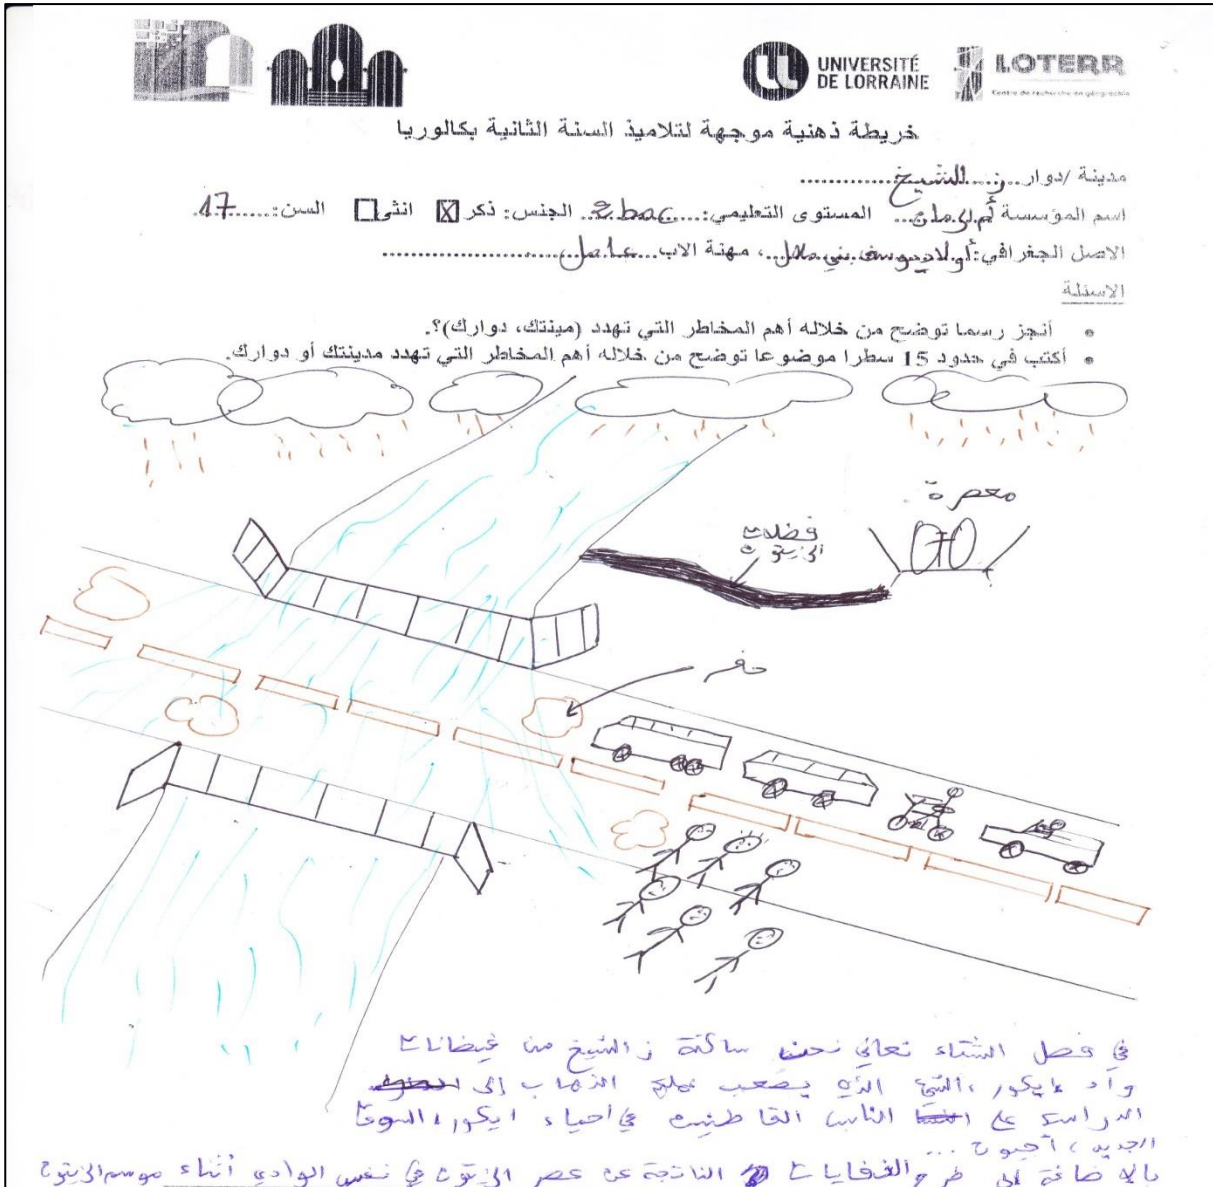 UNIVERSITÉ
DE LORRAINE
LOTERR
Centre de recherche en géographie
خريطة ذهنية موجهة لتلاميذ السنة الثانية بكالوريا
مدينة /دوار ز. الشيخ
اسم المؤسسة المستوى التعليمي: الجنس: ذكر ☒ انثى ☐ السن: 17
الاصل الجغرافي: أولاد يوسف بني ملال، مهنة الاب عامل
الاسئلة
أنجز رسما توضح من خلاله أهم المخاطر التي تهدد (مينتك، دوارك)؟.
أكتب في حدود 15 سطرا موضوعا توضح من خلاله أهم المخاطر التي تهدد مدينتك أو دوارك.
معصرة
فضلات
الزيتون
حفر
في فصل الشتاء نعاني نحن ساكنة ز الشيخ من فيضانات
واد ايكور، الشيئ الذي يصعب عليهم الذهاب إلى
الدراسة على الناس القاطنين في احياء ايكور، السوق
الجديد، ...
بالاضافة الى طرح النفايات الناتجة عن عصر الزيتون في نفس الوادي أثناء موسم الزيتون